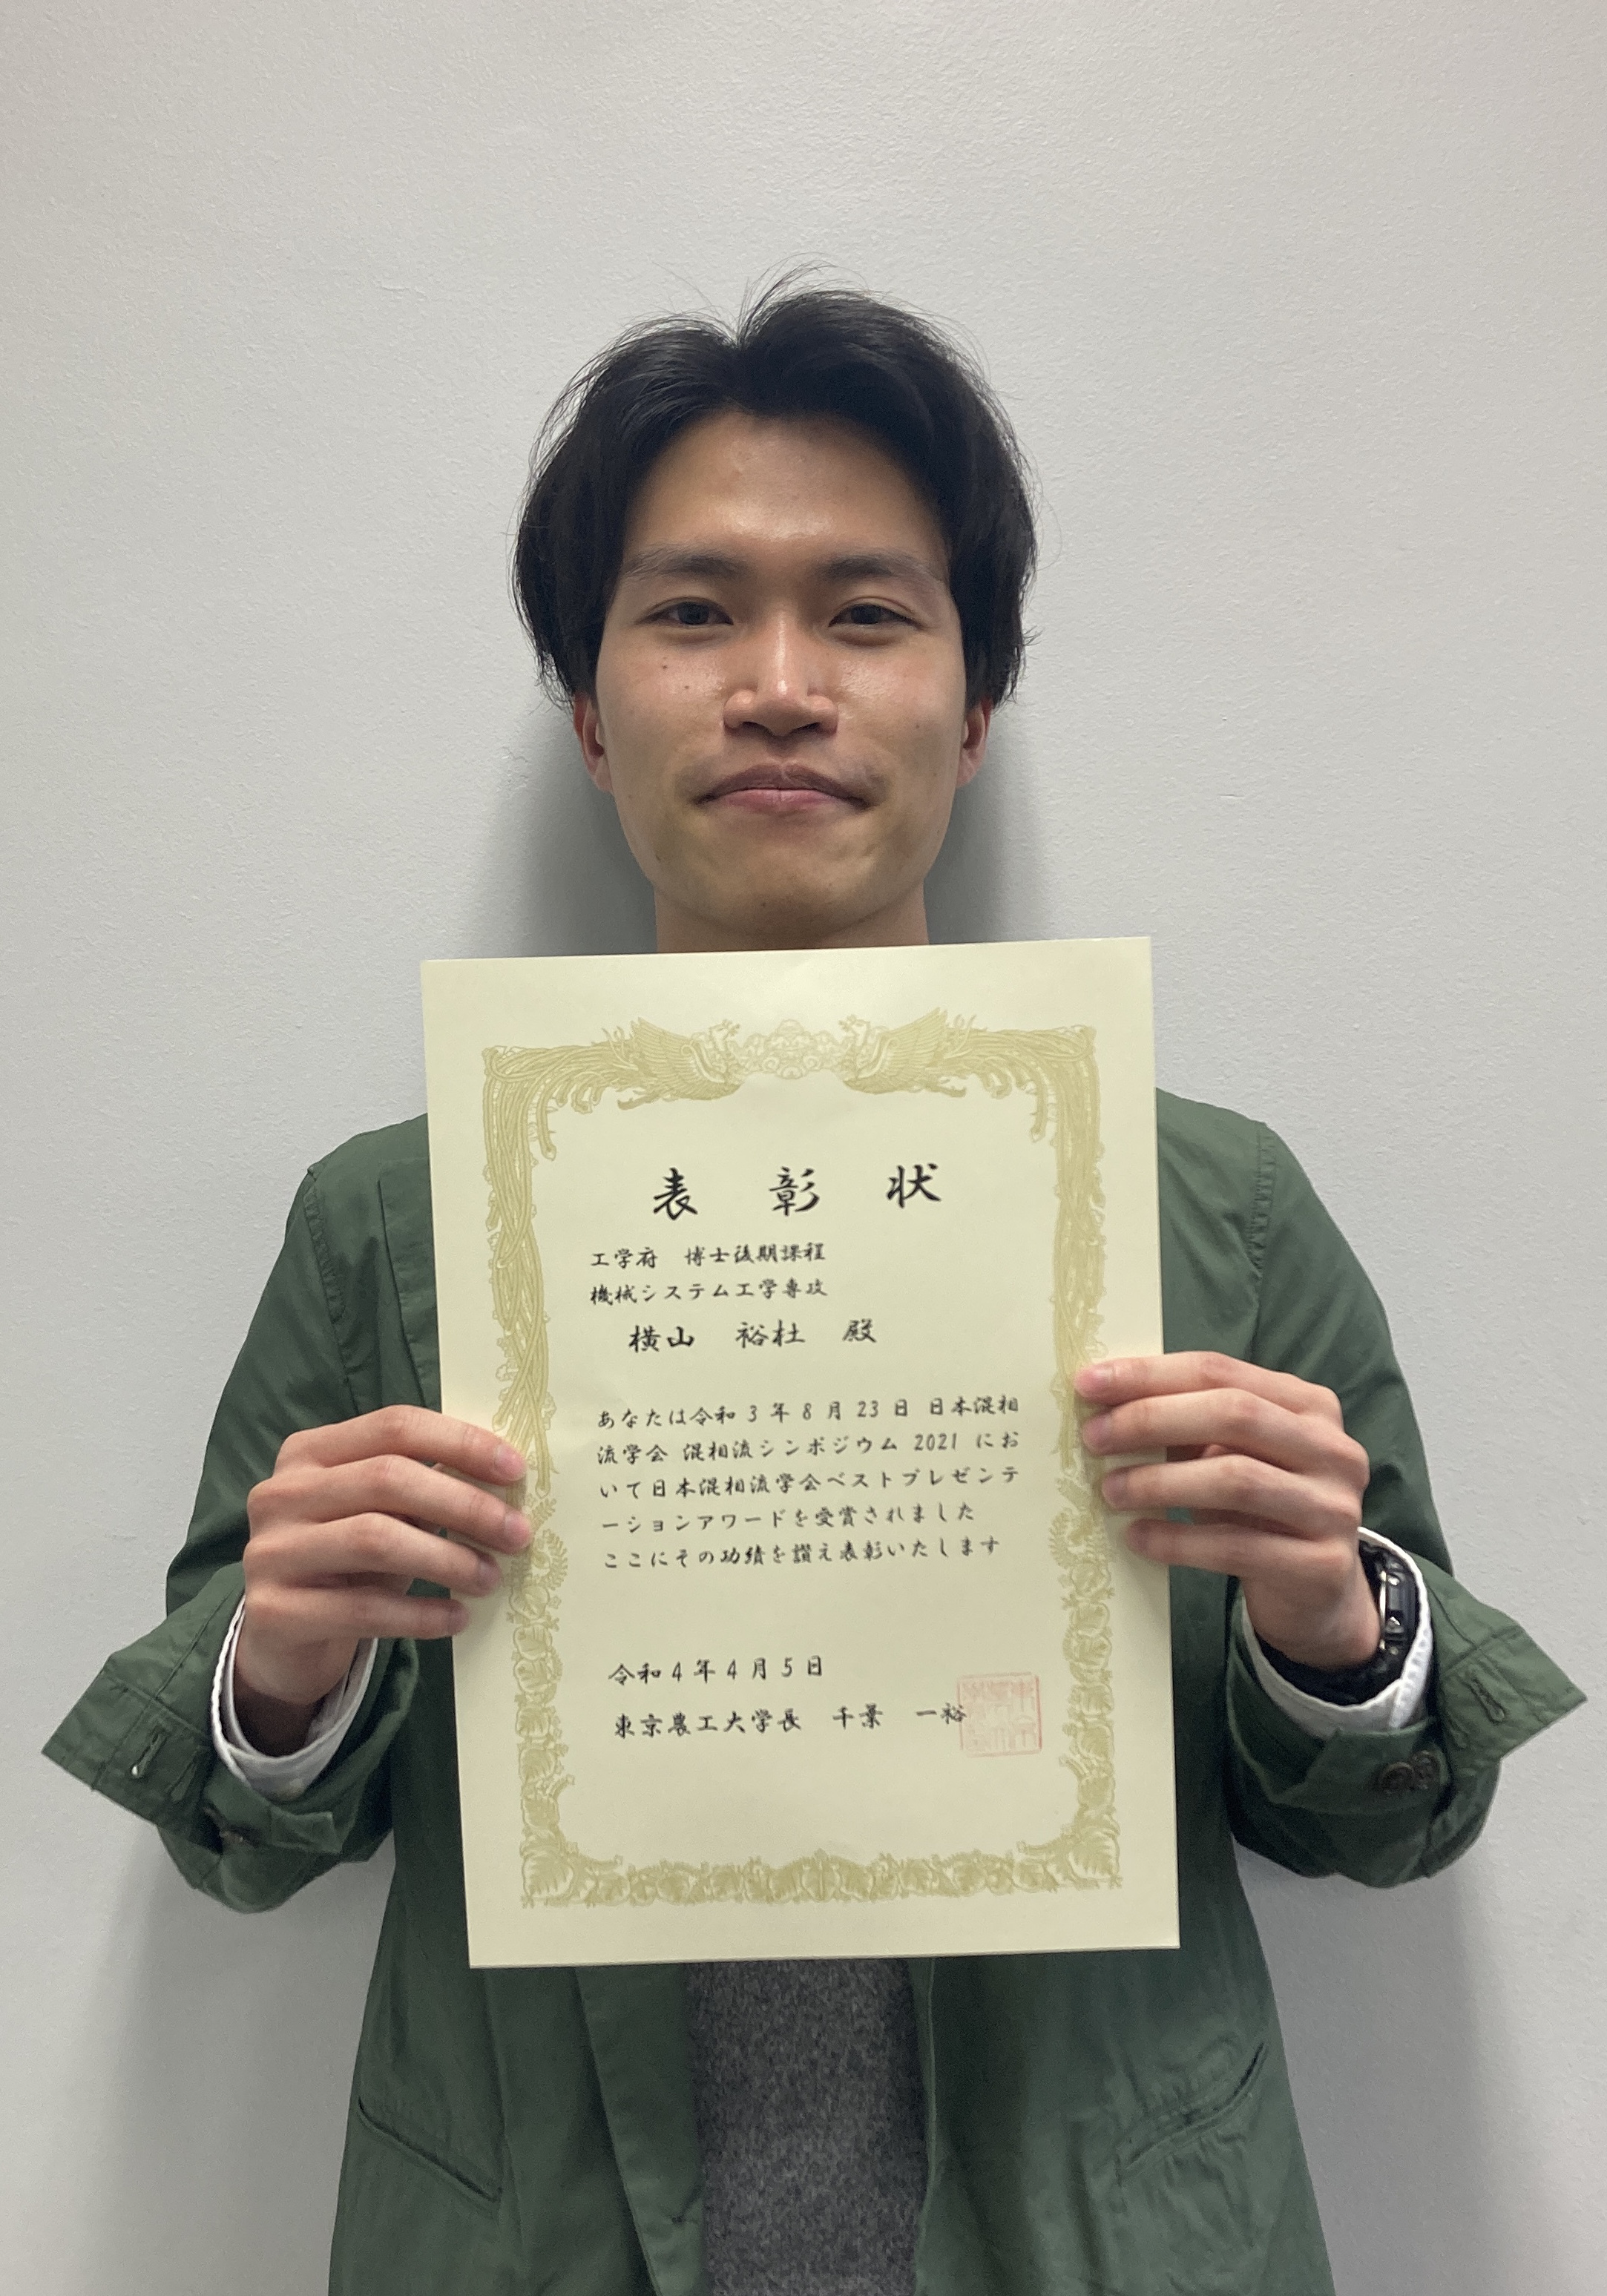 表彰状
工学府 博士後期課程
機械システム工学専攻
横山 裕杜 殿
あなたは令和3年8月23日 日本混相
流学会 混相流シンポジウム 2021 にお
いて日本混相流学会ベストプレゼンテ
ーションアワードを受賞されました
ここにその功績を讃え表彰いたします
令和4年4月5日
東京農工大学長 千葉 一裕